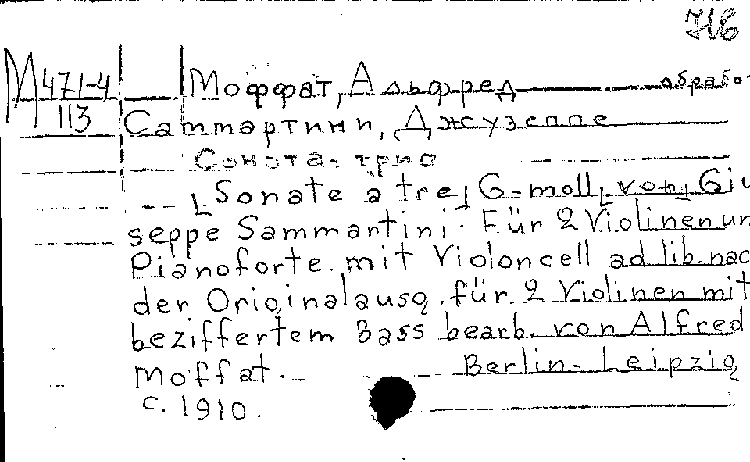 716
М 471-4 Моффат, Альфред обрабо
113 Саммартини, Джузеппе
Соната-трио
[Sonate a tre] G-moll [von] Giu
seppe Sammartini. Für 2 Violinen un
Pianoforte mit Violoncell ad lib. nac
der Originalausg. für 2 Violinen mit
beziffertem Bass bearb. von Alfred
Moffat. Berlin-Leipzig
c. 1910.